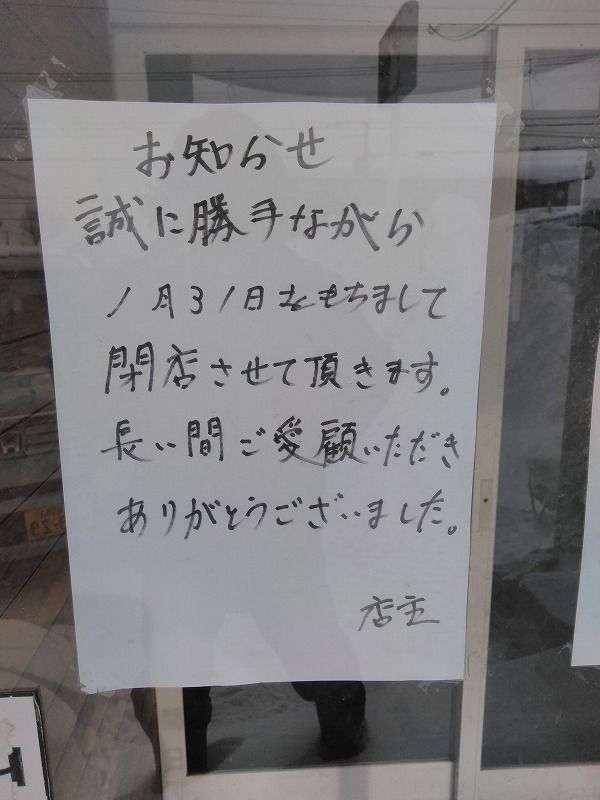 お知らせ
誠に勝手ながら
1月31日をもちまして
閉店させて頂きます。
長い間ご愛顧いただき
ありがとうございました。
店主